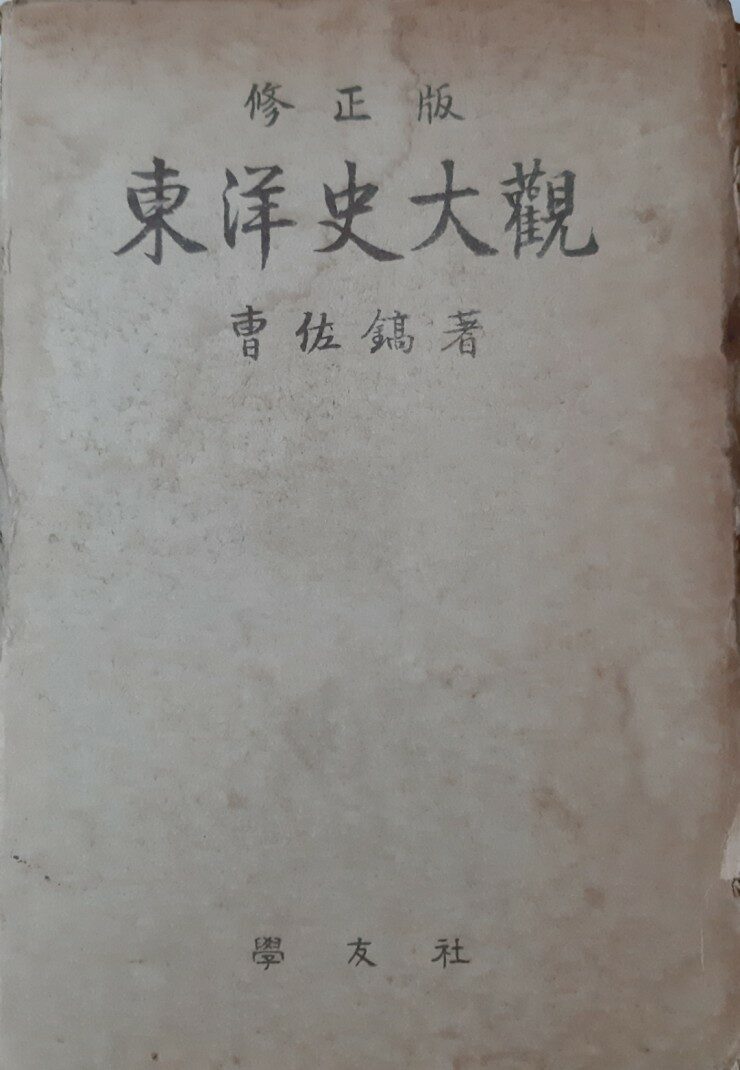 修正版
東洋史大觀
曺佐鎬著
學友社